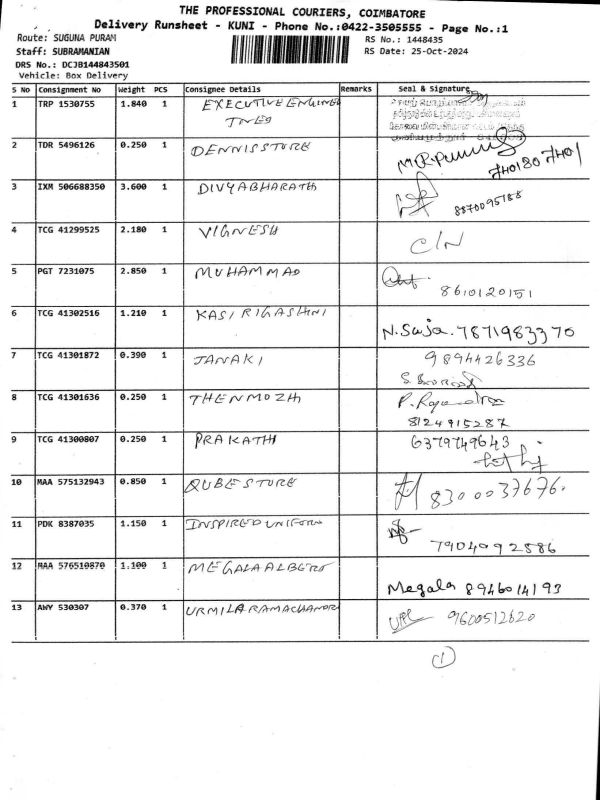 THE PROFESSIONAL COURIERS, COIMBATORE
Delivery Runsheet - KUNI - Phone No.:0422-3505555 - Page No.:1
Route: SUGUNA PURAM
RS No.: 1448435
Staff: SUBRAMANIAN
RS Date: 25-Oct-2024
DRS No.: DCJB144843501
Vehicle: Box Delivery
S No Consignment No Weight PCS Consignee Details Remarks Seal & Signature
1 TRP 1530755 1.840 1 EXECUTIVE ENGINEE
TNEB
2 TDR 5496126 0.250 1 DENNISSTORE
3 IXM 506688350 3.600 1 DIVYABHARATH
8870095188
4 TCG 41299525 2.180 1 VIGNESH
C/N
5 PGT 7231075 2.850 1 MUHAMMAD
8610120151
6 TCG 41302516 1.210 1 KASIRIGASHNI
N.Suja. 7871983370
7 TCG 41301872 0.390 1 JANAKI 9894426336
8 TCG 41301636 0.250 1 THENMOZH
8124915287
9 TCG 41300807 0.250 1 PRAKATHI 6379749643
10 MAA 575132943 0.850 1 QUBESTORE
8300037676.
11 PDK 8387035 1.150 1 INSPIREDUNIFORM
7904092586
12 MAA 576510870 1.100 1 MEGALAALBERT
Megala 8946014193
13 AWY 530307 0.370 1 URMILARAMACHANDR
9600512620
1